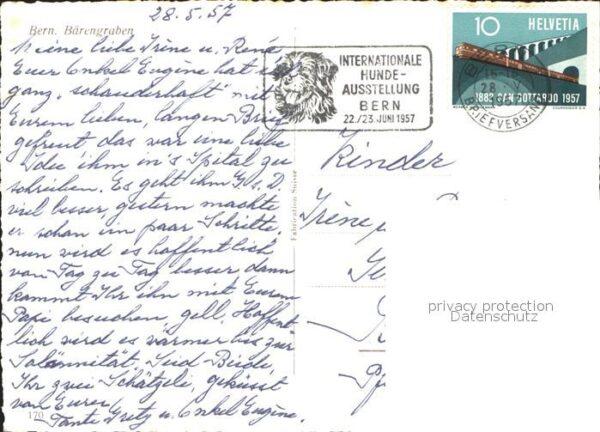 28.5.57
Bern. Bärengraben
Meine liebe Irène u. René
Euer Onkel Eugène hat es
ganz "schauderhaft" mit
Eurem lieben, langen Brief
gefreut, das war eine liebe
Idee ihm in's Spital zu
schreiben. Es geht ihm G.s.D.
viel besser, gestern machte
er schon ein paar Schritte,
nun wird es hoffentlich
von Tag zu Tag besser dann
kommt Ihr ihn mit Eurem
Papi besuchen gell. Hoffent
lich wird es wärmer bis zur
Solännität. Seid Beide,
Ihr zwei Schätzeli, geküsst
von Eurer
Tante Gretz u. Onkel Eugène.
170
Fabrication Suisse
INTERNATIONALE
HUNDE-
AUSSTELLUNG
BERN
22./23. JUNI 1957
10 HELVETIA
1882 SAN GOTTARDO 1957
BRIEFVERSAND
Kinder
Irène
privacy protection
Datenschutz